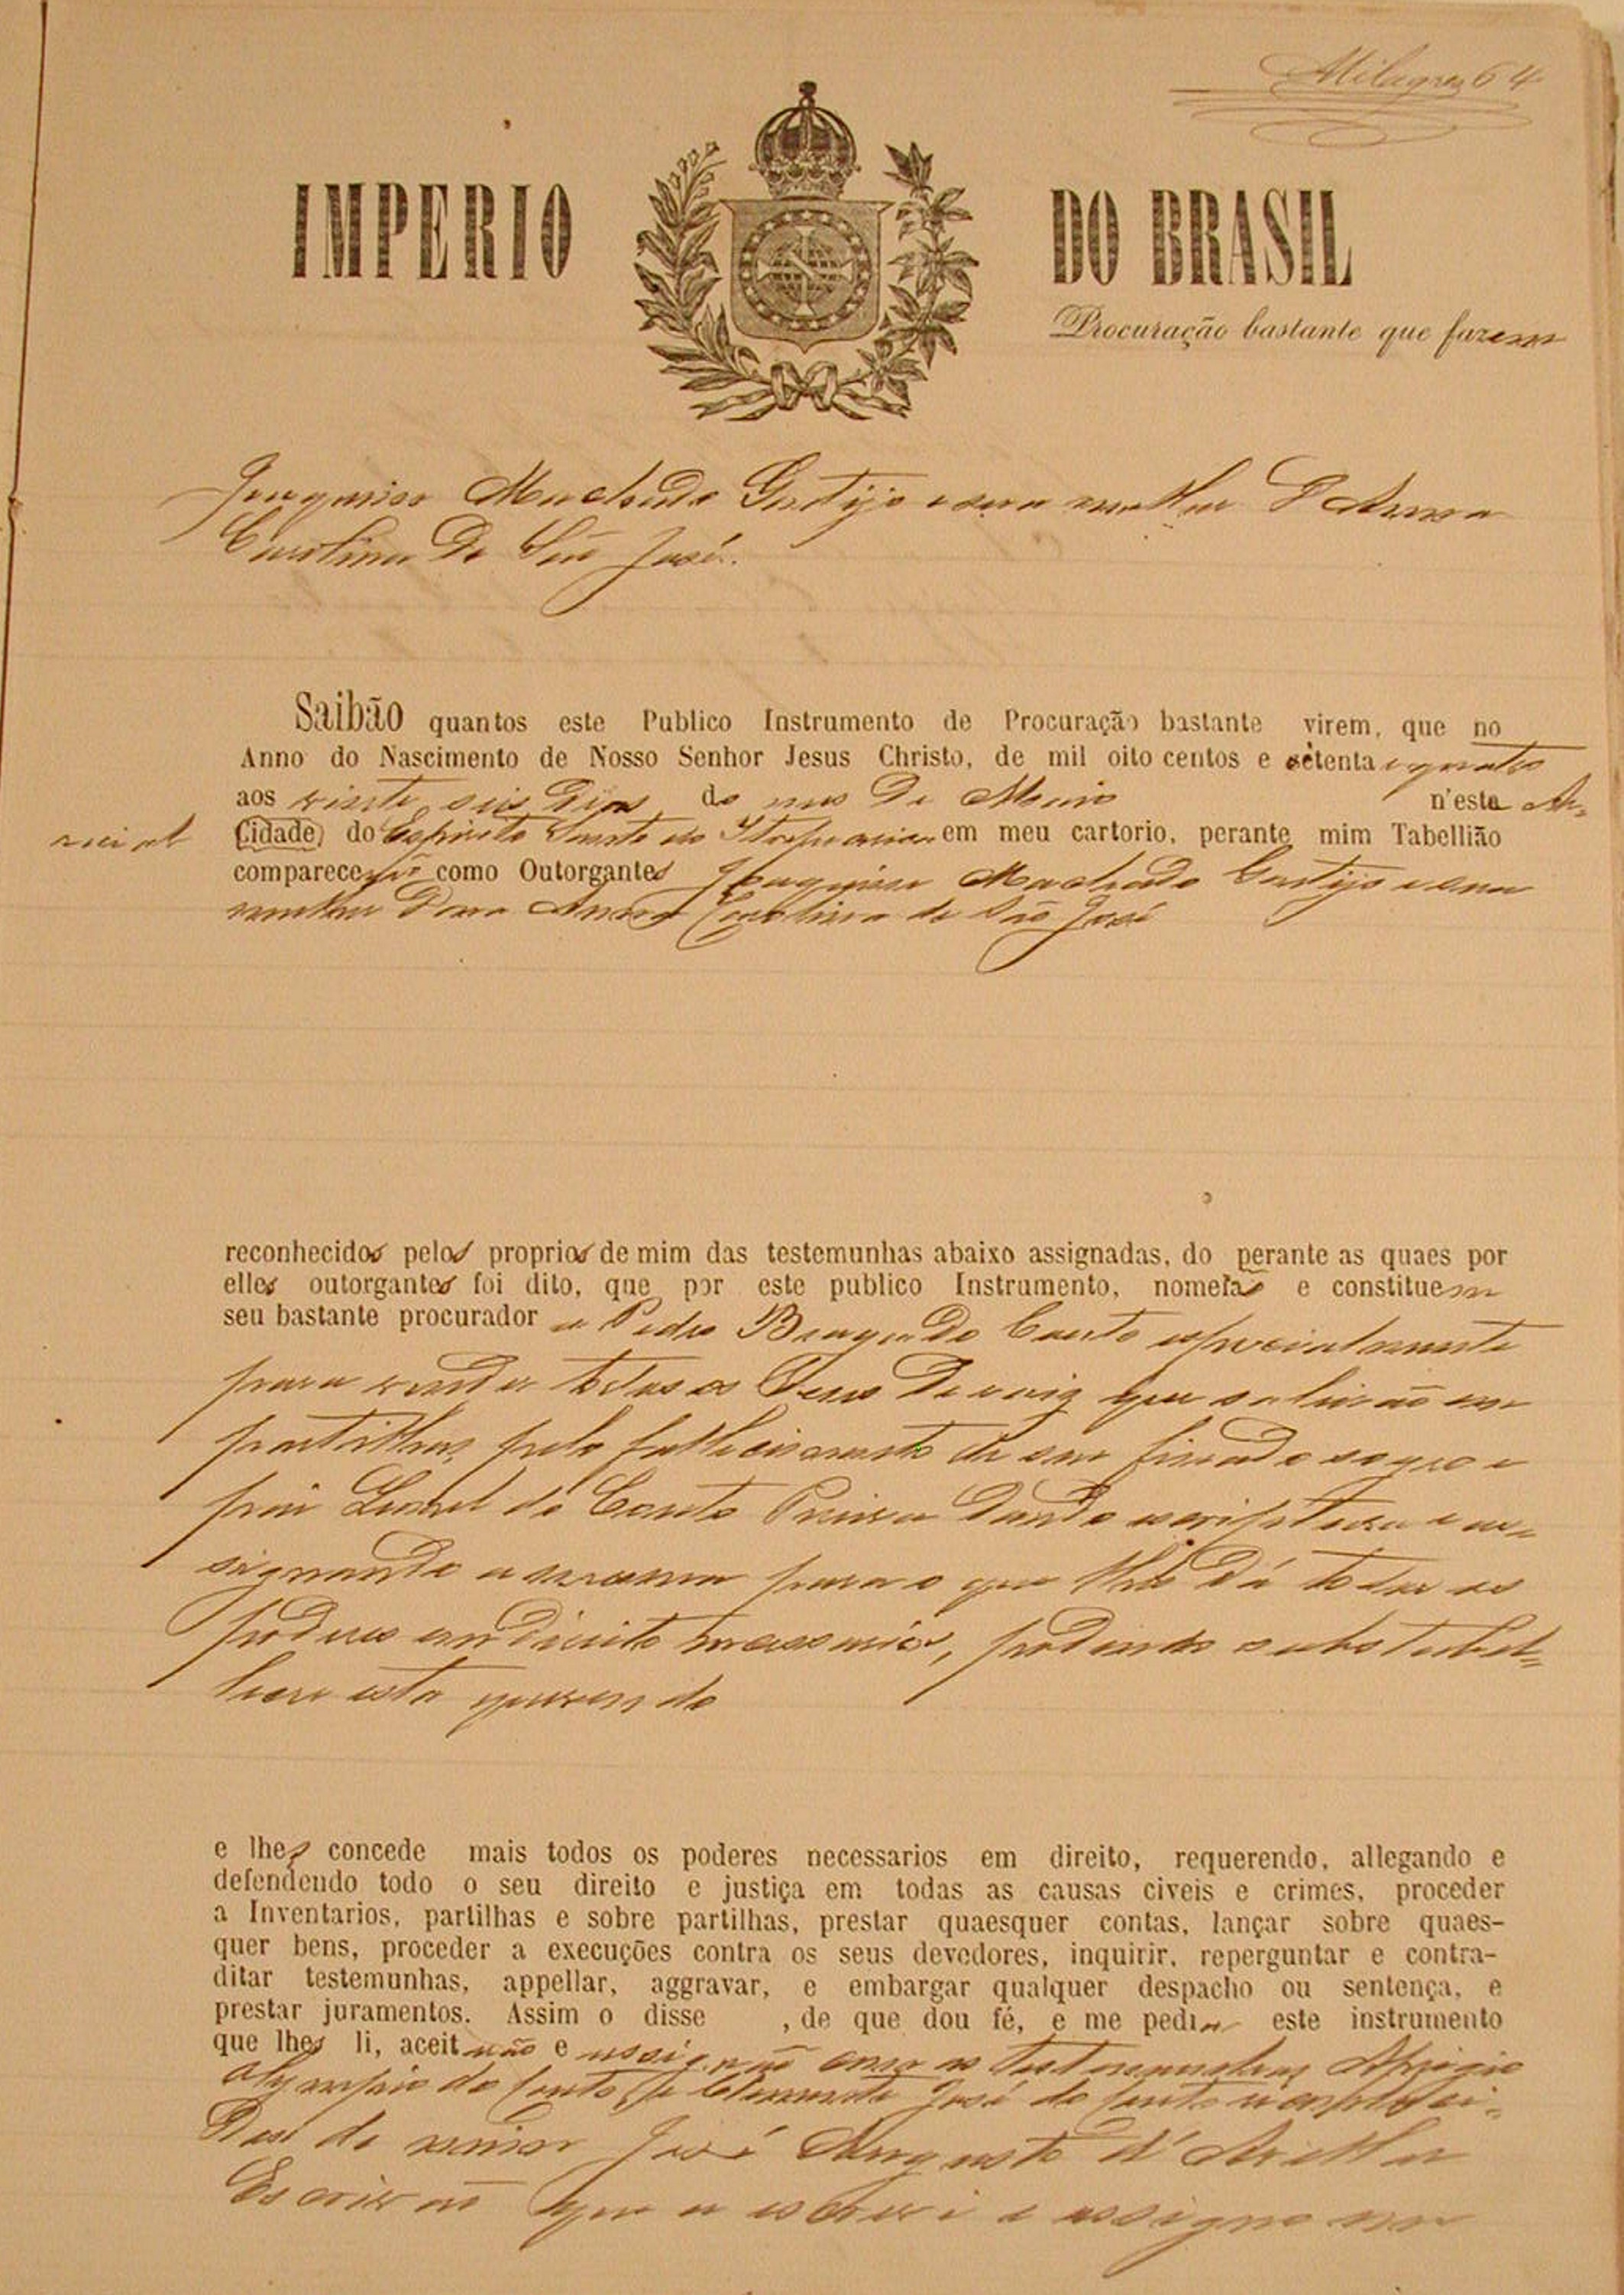 Milagres 64
IMPERIO DO BRASIL
Procuração bastante que fazem
Joaquim Machado Gontijo e sua mulher D Anna
Carolina de São José.
Saibão quantos este Publico Instrumento de Procuração bastante virem, que no
Anno do Nascimento de Nosso Senhor Jesus Christo, de mil oito centos e setenta e quatro
aos vinte seis dias do mes de Maio n'esta Ar-
raial (Cidade) do Espirito Santo da Itapecerica em meu cartorio, perante mim Tabellião
comparecerão como Outorgantes Joaquim Machado Gontijo e sua
mulher Dona Anna Carolina de São José
reconhecidos pelos proprios de mim das testemunhas abaixo assignadas, do perante as quaes por
elles outorgantes foi dito, que por este publico Instrumento, nomeião e constituem
seu bastante procurador a Pedro do Couto especialmente
para vender todos os bens de raiz que em
partilhas, pelo fallecimento de seu finado sogro e
pai do Couto dando escriptura e as-
signando a mesma para o que lhe dá todos os
poderes em direito necessarios, podendo substabel-
lecer esta querendo
e lhes concede mais todos os poderes necessarios em direito, requerendo, allegando e
defendendo todo o seu direito e justiça em todas as causas civeis e crimes, proceder
a Inventarios, partilhas e sobre partilhas, prestar quaesquer contas, lançar sobre quaes-
quer bens, proceder a execuções contra os seus devedores, inquirir, reperguntar e contra-
ditar testemunhas, appellar, aggravar, e embargar qualquer despacho ou sentença, e
prestar juramentos. Assim o disse , de que dou fé, e me pedir este instrumento
que lhes li, aceitarão e assignão com as testemunhas
Olympio do Couto e Clemente José do Couto
de mim José Augusto d'Avilla
Escrivão que a escrevi e assigno em